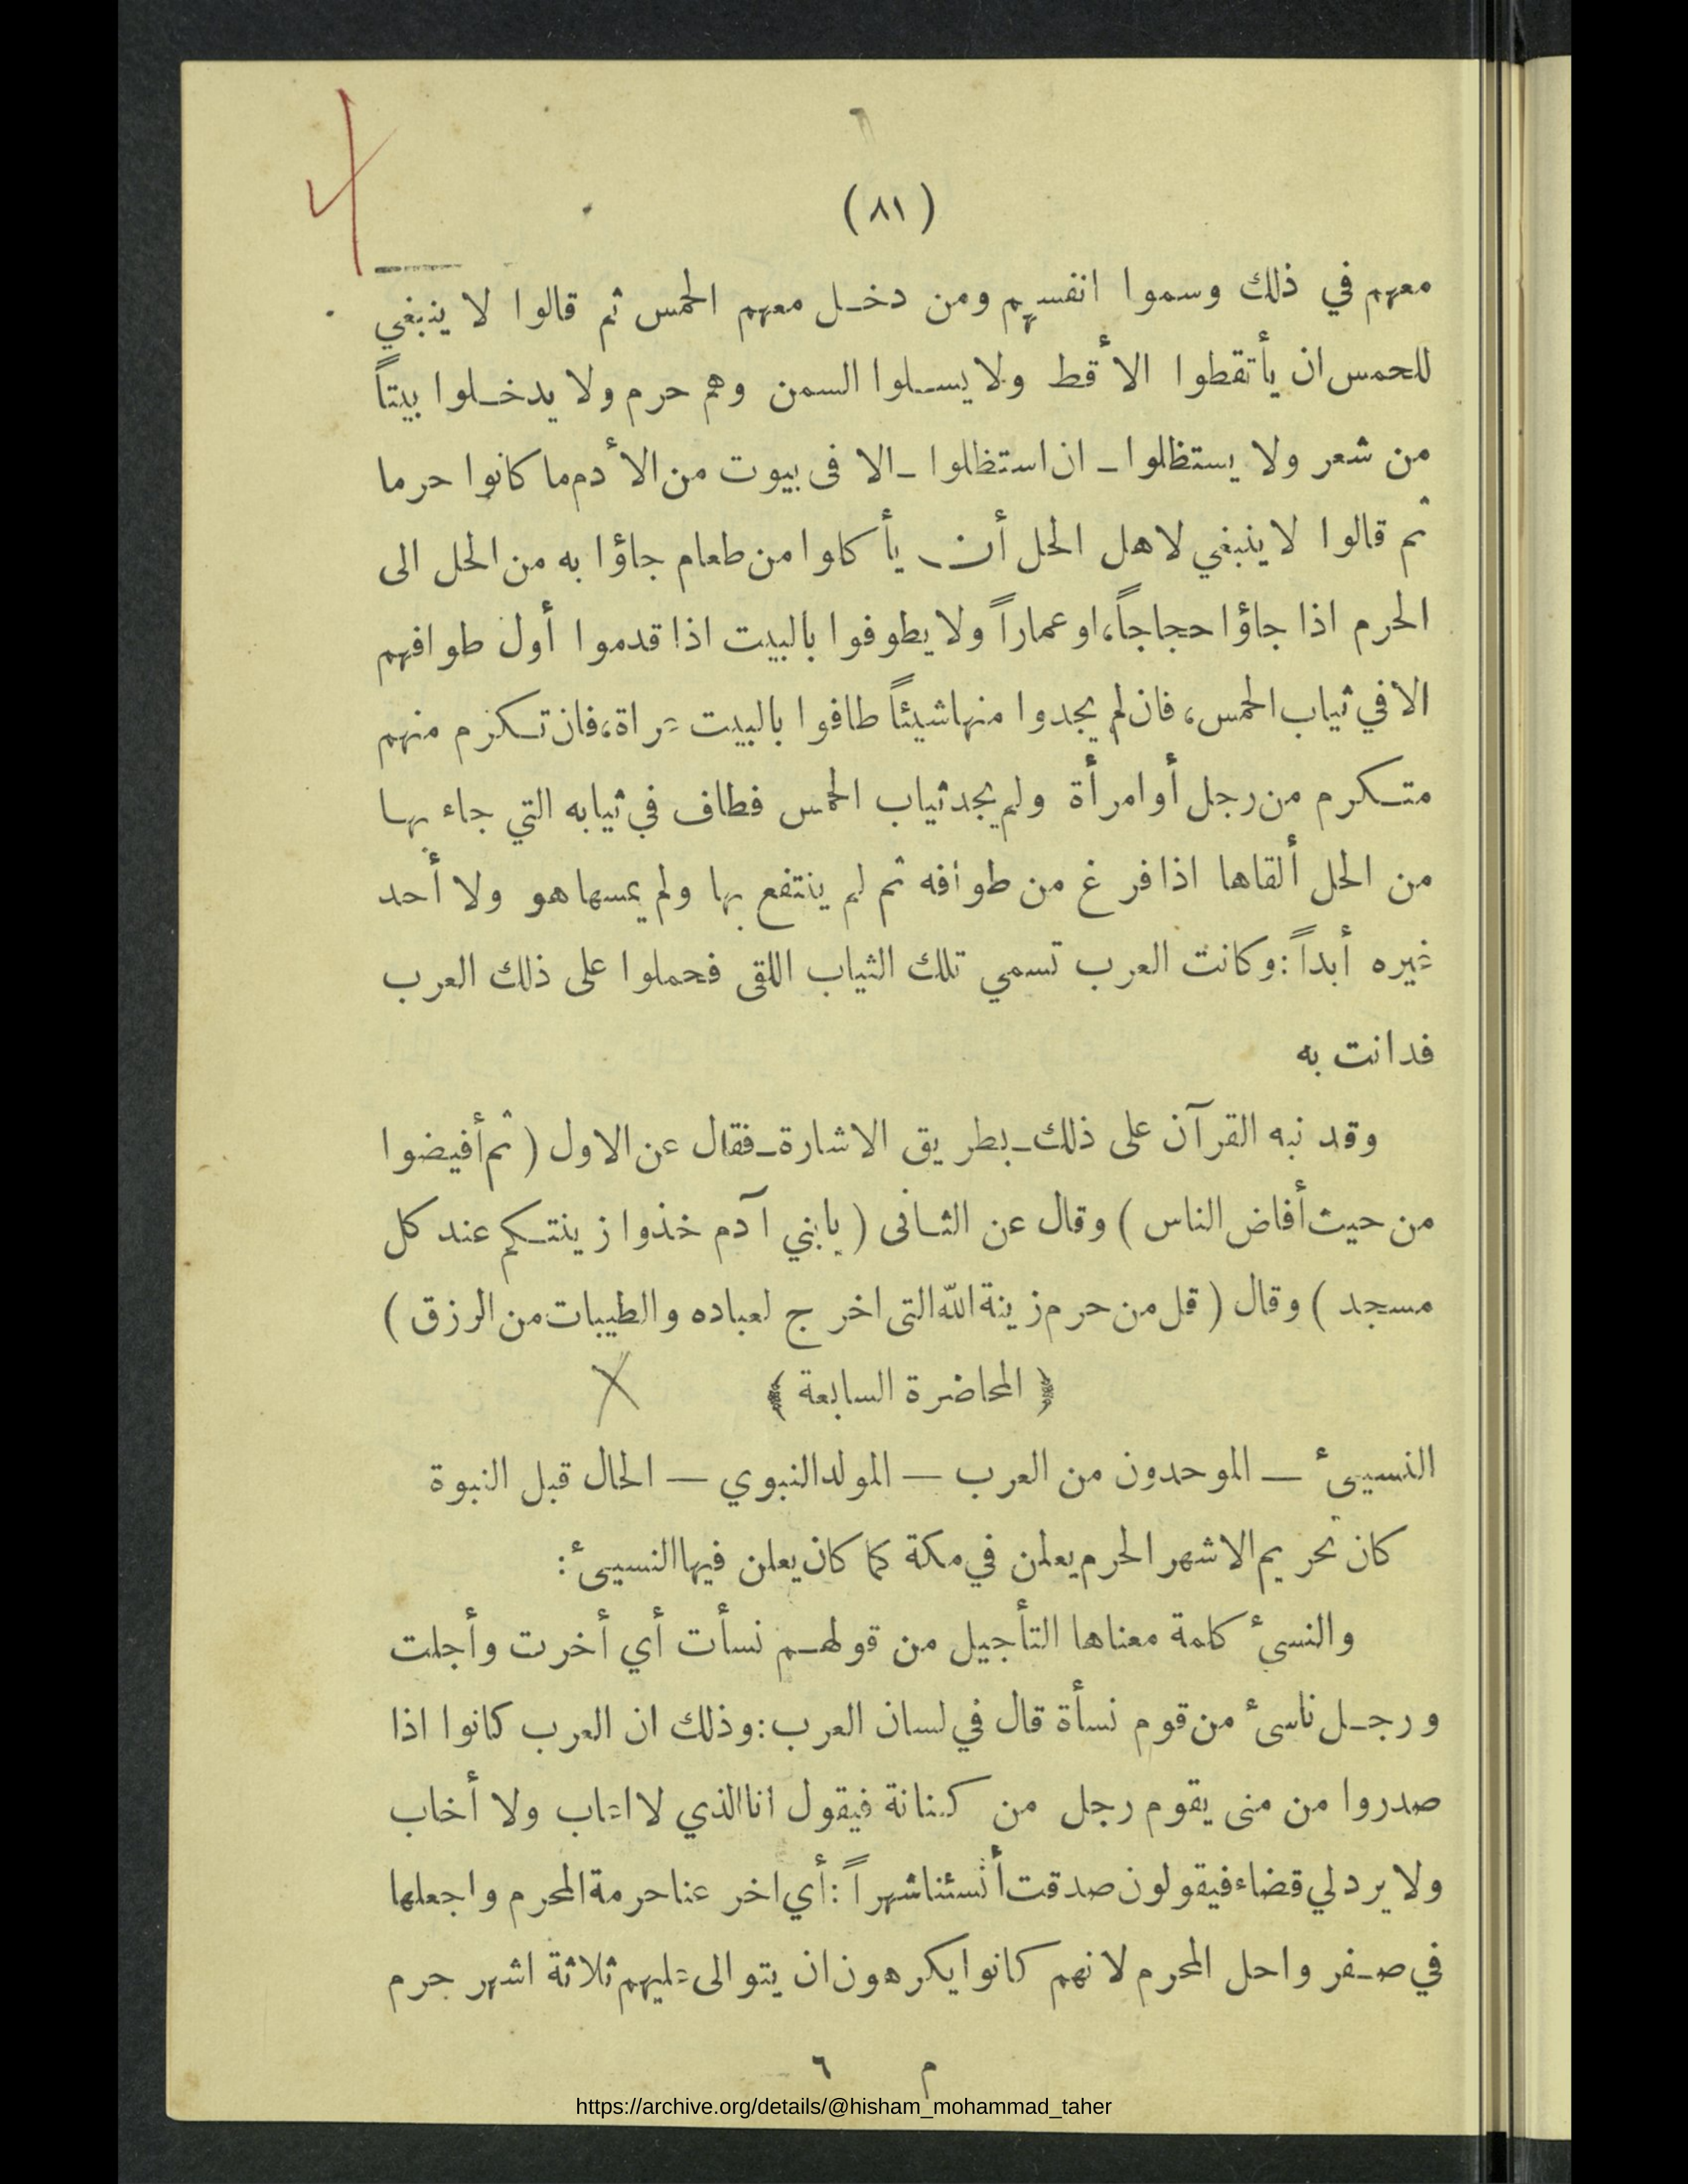 (٨١)
معهم في ذلك وسموا انفسهم ومن دخل معهم الحمس ثم قالوا لا ينبغي
للحمس ان يأتقطوا الأقط ولا يسلوا السمن وهم حرم ولا يدخلوا بيتاً
من شعر ولا يستظلوا ـ ان استظلوا ـ الا فى بيوت من الأدم ما كانوا حرما
ثم قالوا لا ينبغي لاهل الحل أن يأكلوا من طعام جاؤا به من الحل الى
الحرم اذا جاؤا حجاجاً، او عماراً ولا يطوفوا بالبيت اذا قدموا أول طوافهم
الا في ثياب الحمس، فان لم يجدوا منها شيئاً طافوا بالبيت عراة، فان تكرم منهم
متكرم من رجل أو امرأة ولم يجد ثياب الحمس فطاف في ثيابه التي جاء بها
من الحل ألقاها اذا فرغ من طوافه ثم لم ينتفع بها ولم يمسها هو ولا أحد
غيره أبداً: وكانت العرب تسمي تلك الثياب اللقى فحملوا على ذلك العرب
فدانت به
وقد نبه القرآن على ذلك ـ بطريق الاشارة ـ فقال عن الاول ( ثم أفيضوا
من حيث أفاض الناس ) وقال عن الثانى ( يا بني آدم خذوا زينتكم عند كل
مسجد ) وقال ( قل من حرم زينة الله التى اخرج لعباده والطيبات من الرزق )
﴿ المحاضرة السابعة ﴾
النسيئ — الموحدون من العرب — المولد النبوي — الحال قبل النبوة
كان تحريم الاشهر الحرم يعلن في مكة كما كان يعلن فيها النسيئ :
والنسئ كلمة معناها التأجيل من قولهم نسأت أي أخرت وأجلت
ورجل ناسئ من قوم نسأة قال في لسان العرب: وذلك ان العرب كانوا اذا
صدروا من منى يقوم رجل من كنانة فيقول انا الذي لا اعاب ولا أخاب
ولا يرد لي قضاء فيقولون صدقت أنسئنا شهراً: أي اخر عنا حرمة المحرم واجعلها
في صفر واحل المحرم لانهم كانوا يكرهون ان يتوالى عليهم ثلاثة اشهر حرم
م ٦
https://archive.org/details/@hisham_mohammad_taher